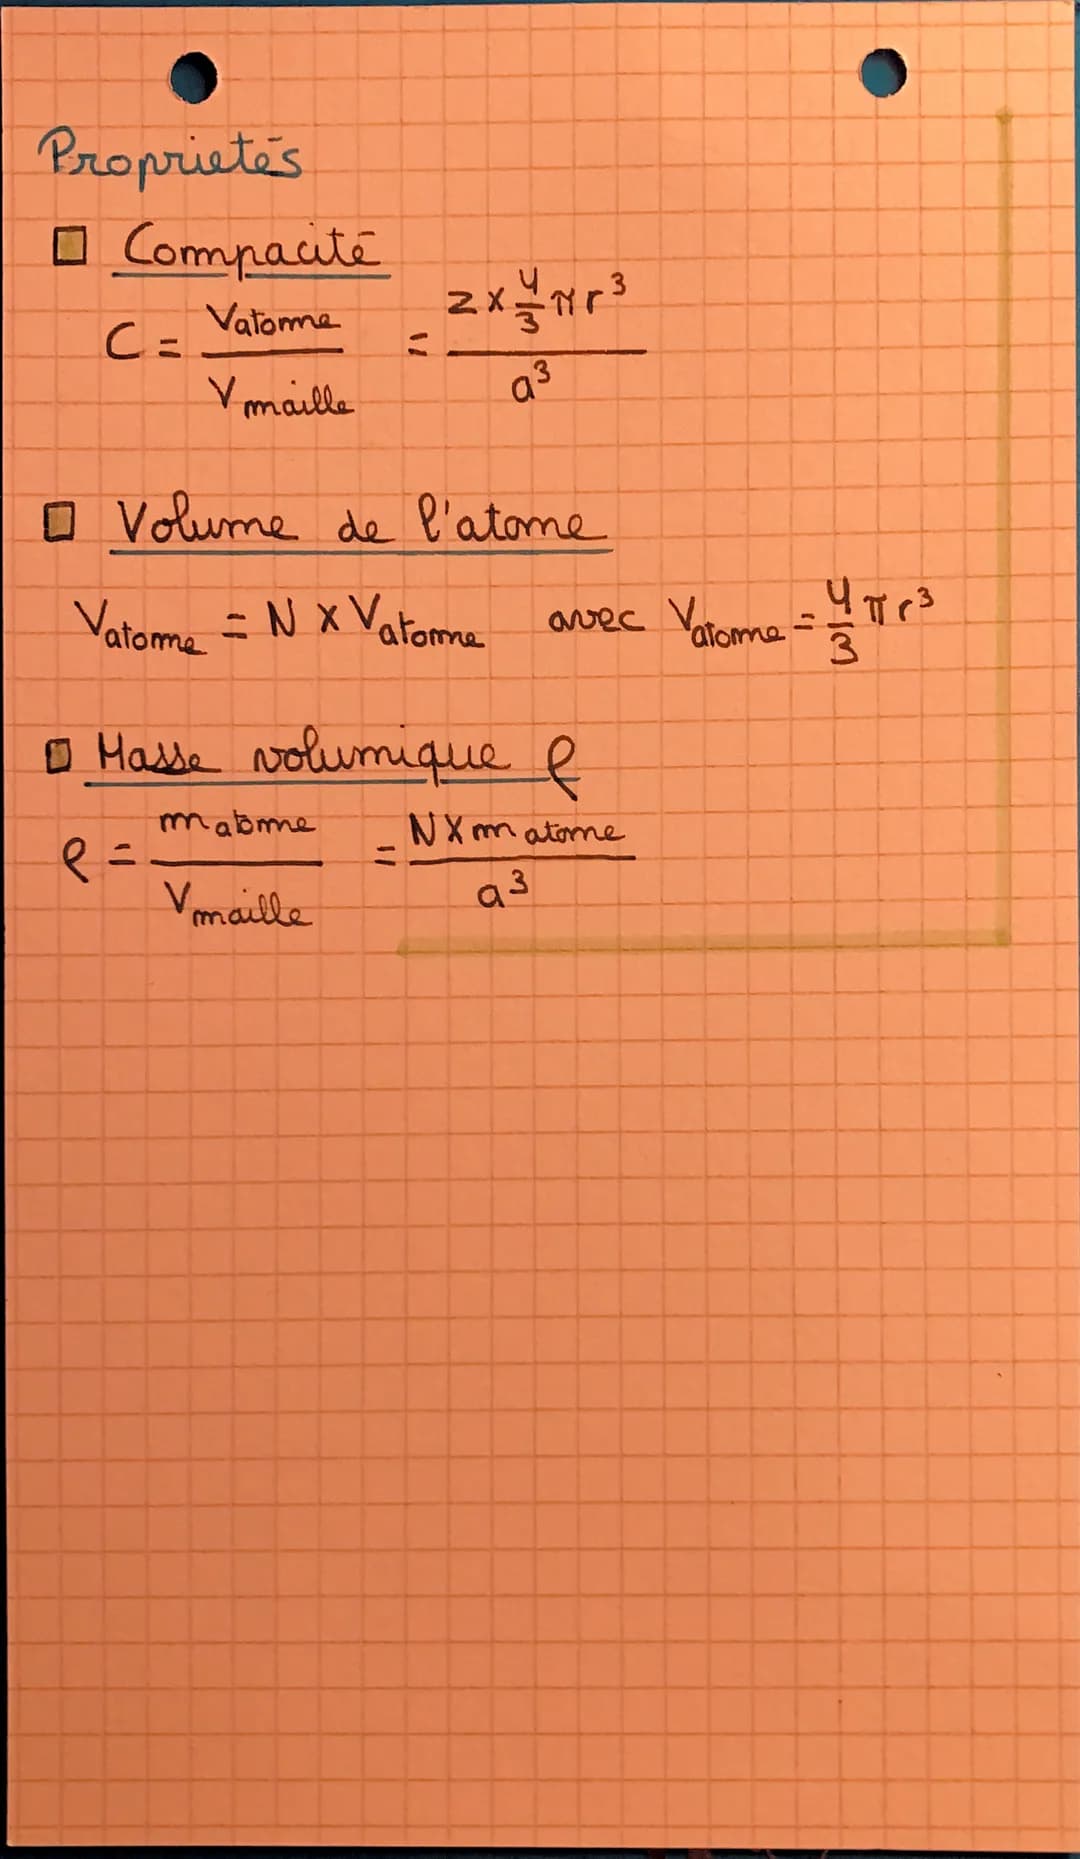 Proprietés
Compacité
C = Vatome / Vmaille = z × 4/3 π r³ / a³
Volume de l'atome
Vatome = N × Vatome avec Vatome = 4/3 π r³
Masse volumique ρ
ρ = matome / Vmaille = N × m atome / a³